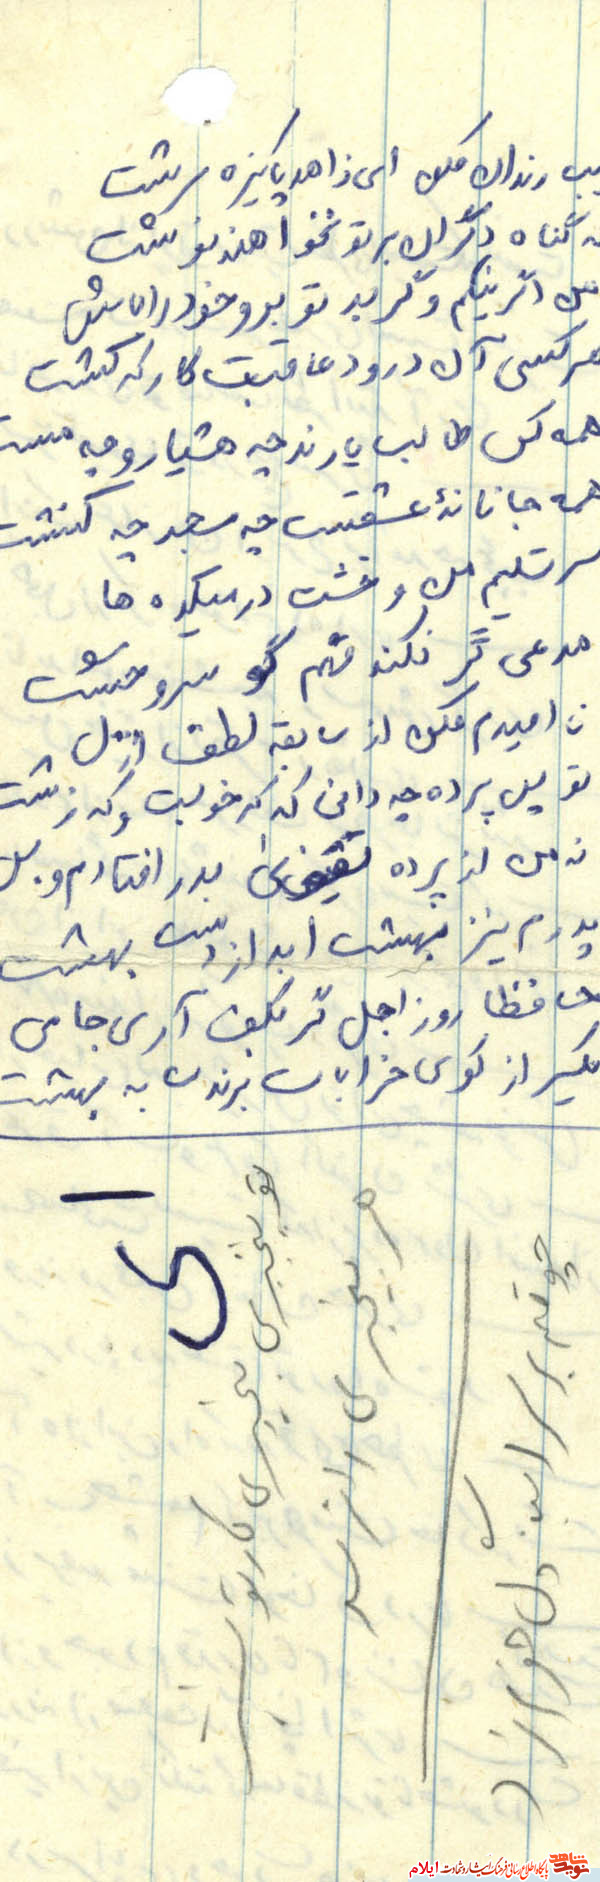 عیب رندان مکن ای زاهد پاکیزه سرشت
که گناه دگران بر تو نخواهند نوشت
من اگر نیکم و گر بد تو برو خود را باش
هر کسی آن درود عاقبت کار که کشت
همه کس طالب یارند چه هشیار و چه مست
همه جا خانهٔ عشقست چه مسجد چه کنشت
سر تسلیم من و خشت در میکده ها
مدعی گر نکند فهم گو سر و خشت
نا امیدم مکن از سابقه لطف ازل
تو پس پرده چه دانی که که خوبست و که زشت
نه من از پرده تقوی بدر افتادم و بس
پدرم نیز بهشت ابد از دست بهشت
حافظا روز اجل گر بکف آری جامی
یکسر از کوی خرابات برندت به بهشت
هر بیخبری را نرسد
تو بیخبری بیخبری کار تو نیست
نوید شاهد
پایگاه اطلاع رسانی فرهنگ ایثار و شهادت ایلام